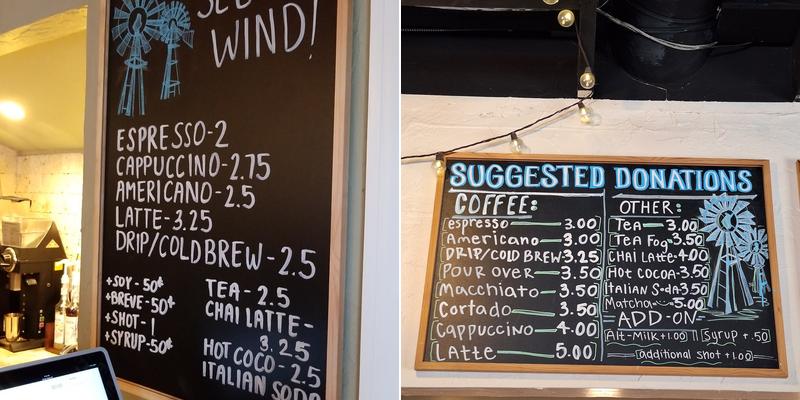 WIND!
ESPRESSO-2
CAPPUCCINO-2.75
AMERICANO-2.5
LATTE-3.25
DRIP/COLD BREW-2.5
+SOY-50¢
+BREVE-50¢
+SHOT-1
+SYRUP-50¢
TEA-2.5
CHAI LATTE-
3.25
HOT COCO-2.5
ITALIAN SODA
SUGGESTED DONATIONS
COFFEE:
espresso — 3.00
Americano — 3.00
DRIP/COLD BREW 3.25
POUR OVER — 3.50
Macchiato — 3.50
Cortado — 3.50
Cappuccino — 4.00
Latte — 5.00
OTHER:
Tea — 3.00
Tea Fog-3.50
CHAI Latte-4.00
HOT COCOA-3.50
Italian Soda-3.50
Matcha — 5.00
ADD-ON
Alt-Milk +1.00
Syrup +.50
additional shot +1.00